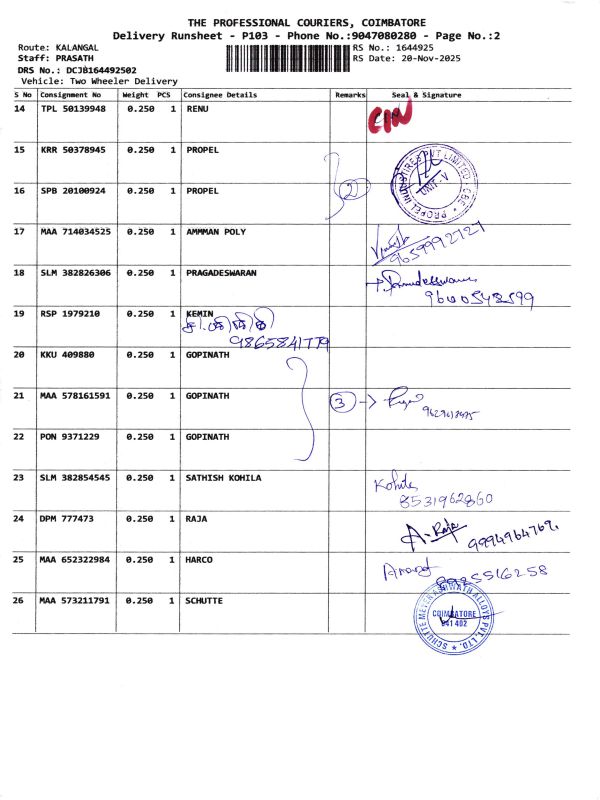 THE PROFESSIONAL COURIERS, COIMBATORE
Delivery Runsheet - P103 - Phone No.:9047080280 - Page No.:2
Route: KALANGAL RS No.: 1644925
Staff: PRASATH RS Date: 20-Nov-2025
DRS No.: DCJB164492502
Vehicle: Two Wheeler Delivery
S No Consignment No Weight PCS Consignee Details Remarks Seal & Signature
14 TPL 50139948 0.250 1 RENU
15 KRR 50378945 0.250 1 PROPEL
PROPEL INDUSTRIES PVT LIMITED - CBE UNIT-V
16 SPB 20100924 0.250 1 PROPEL 2
17 MAA 714034525 0.250 1 AMMMAN POLY
9659992727
18 SLM 382826306 0.250 1 PRAGADESWARAN
19 RSP 1979210 0.250 1 KEMIN
9865841779
20 KKU 409880 0.250 1 GOPINATH
21 MAA 578161591 0.250 1 GOPINATH 3
22 PON 9371229 0.250 1 GOPINATH
23 SLM 382854545 0.250 1 SATHISH KOHILA Kohila
8531962860
24 DPM 777473 0.250 1 RAJA A. Raja
9994964769.
25 MAA 652322984 0.250 1 HARCO Anand
26 MAA 573211791 0.250 1 SCHUTTE
COIMBATORE
641 402
ALLOYS PVT. LTD.